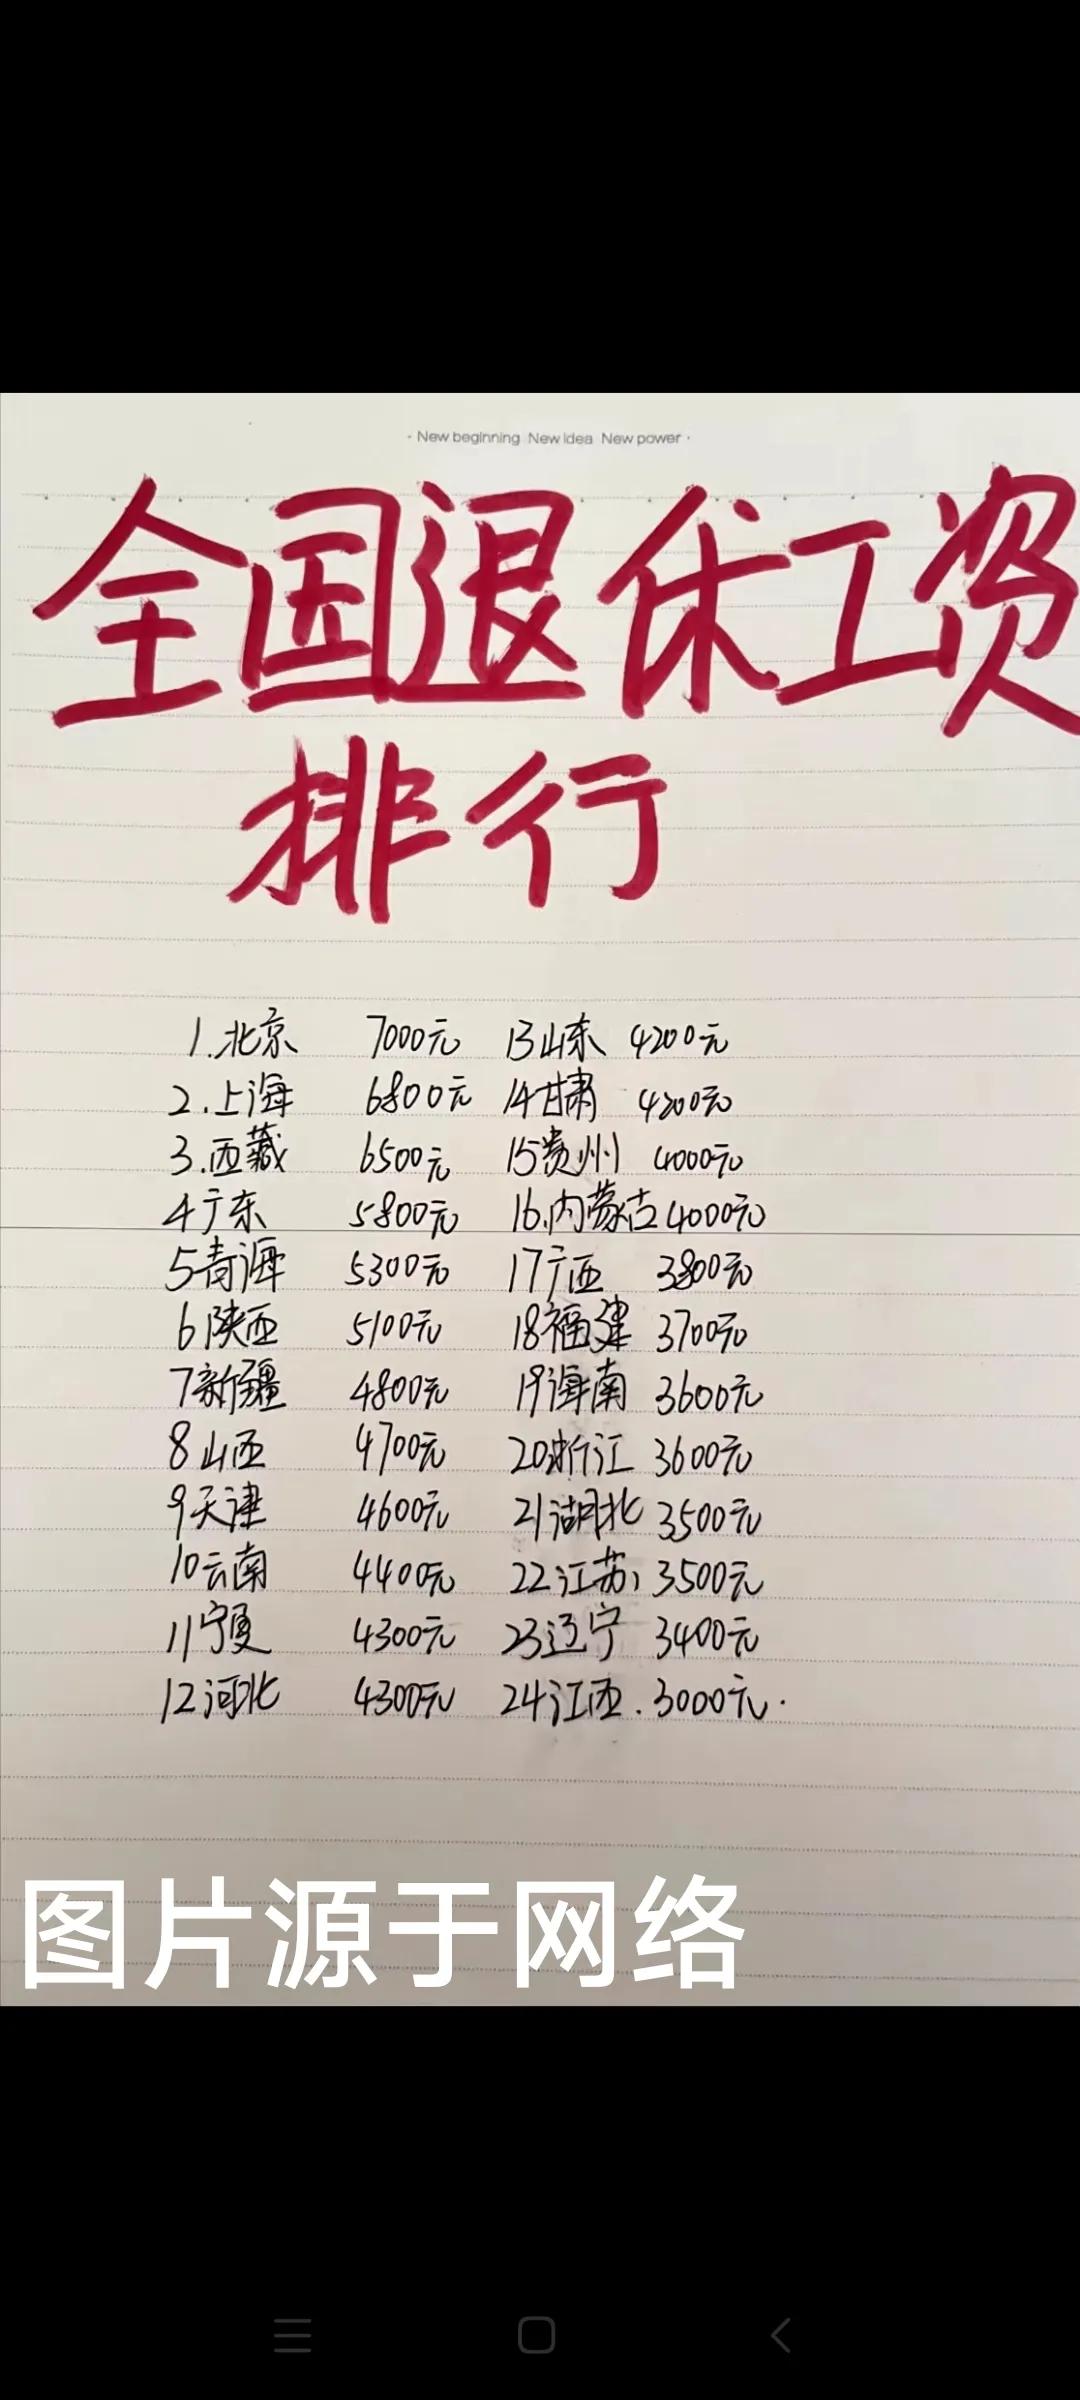 · New beginning New idea New power ·
全国退休工资
排行
1.北京 7000元 13山东 4200元
2.上海 6800元 14甘肃 4200元
3.西藏 6500元 15贵州 4000元
4广东 5800元 16.内蒙古4000元
5青海 5300元 17广西 3800元
6陕西 5100元 18福建 3700元
7新疆 4800元 19海南 3600元
8山西 4700元 20浙江 3600元
9天津 4600元 21湖北 3500元
10云南 4400元 22江苏 3500元
11宁夏 4300元 23辽宁 3400元
12河北 4300元 24江西. 3000元.
图片源于网络